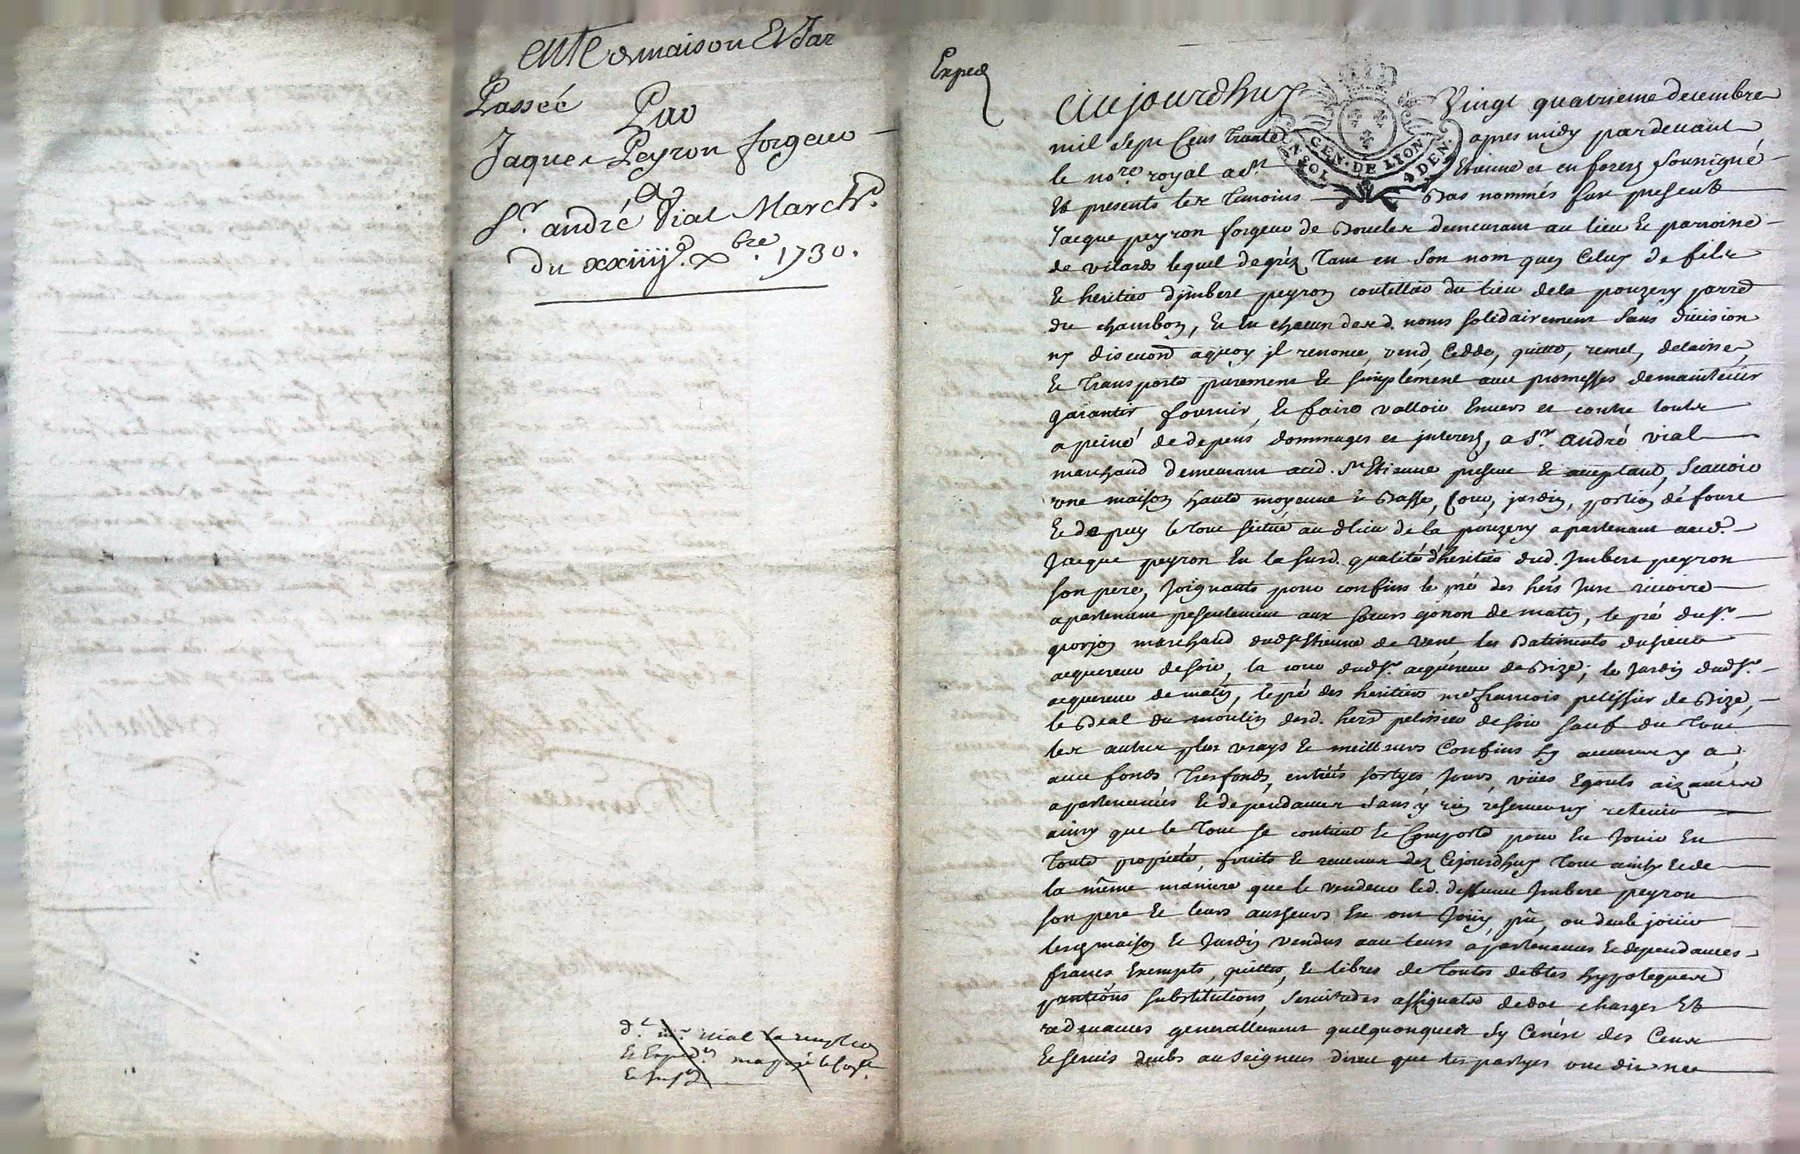 ente de maison Et Jar
Passée Par
Jaques Peyron forgeur
A
Sr. andré Vial March.d
du xxiiije. xbre. 1730.
d.t mr. vial
Et Exped.n m'a payé
Exped
Aujourdhuy Vingt quatrieme decembre
mil sept Cens trante apres midy pardevant
le no.re royal a St Etienne et en forez sousigné
Et presents les temoins Bas nommés fut present
Jacque peyron forgeur de Boucles demeurant au lieu et parroisse
de vilards lequel de gréz tant en son nom que Celuy de fils
Et heritier d'jmbert peyron coutellier du lieu de la pouzery parr.e
du chambon, Et En chacun desd. noms solidairement sans division
ny discution aquoy jl renonce, vend, Cedde, quitte, remet, delaisse,
Et transporte purement Et simplement avec promesses de maintenir
garantir fournir Et faire valloir Envers et contre toutes
a peine de depens dommages et jnterests, a Sr. andré vial
marchand demeurant aud. St Etienne present Et acceptant, scavoir
vne maison haute moyenne Et Basse, Cour, jardin, portion de foure
Et de puy le tout scitué aud lieu de la pouzery apartenant aud.
Jacque peyron En la susd. qualité d'heritier dud. Jmbert peyron
son pere, Joignants pour confins le pré des hers
apartenant presentement aux sieurs gonon de matin, le pré du sr.
marchand dud St Etienne de vent, les Batiments dusieur
acquereur de soir, la cour dud sr. acquereur de Bize; le Jardin dud sr.
acquereur de matin, le pré des heritiers me francois pelissier de Bize,
le Beal du moulin desd. hers pelissier de soir sauf du tout
les autres plus vrays Et meilleurs Confins sy aucuns y a,
avec fonds tresfonds, entrées sortyes, Jours, vües Egouts aizances
apartenances Et dependances sans y rien reserver ny retenir
ainsy que le tout se contient Et Comporte pour En Jouir En
toute proprieté, fruits Et revenus dez Cejourdhuy tout ainsy Et de
la même maniere que le vendeur led. deffunt Jmbert peyron
son pere Et leurs autheurs En ont Joüy, pû, ou deub joüir
maison Et Jardin vendus avec leurs apartenances Et dependances
francs Exempts, quittes, Et libres de toutes debtes hypoteques
pantions substitutions, servitudes assignats de dot charges Et
redevances generallement quelquonques sy Cenest des Cens
Et servis deubs au seigneur direct que les partyes